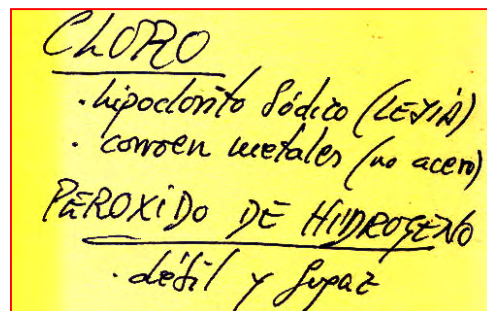 CLORO
· hipoclorito sódico (LEJIA)
· corroen metales (no acero)
PEROXIDO DE HIDROGENO
· débil y fugaz